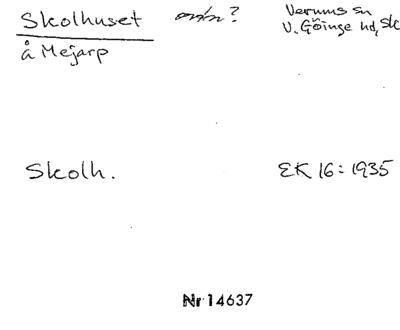 Skolhuset ortn? Verums sn
å Mejarp V. Göinge hd, Sk
Skolh. EK 16:1935
Nr 14637